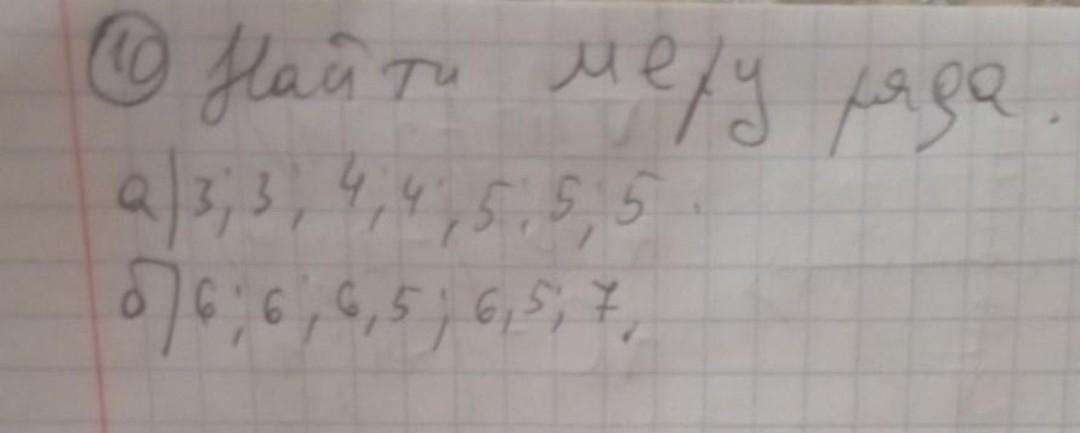 10 Найти меру ряда.
а) 3; 3; 4; 4; 5; 5; 5.
б) 6; 6; 6,5; 6,5; 7.